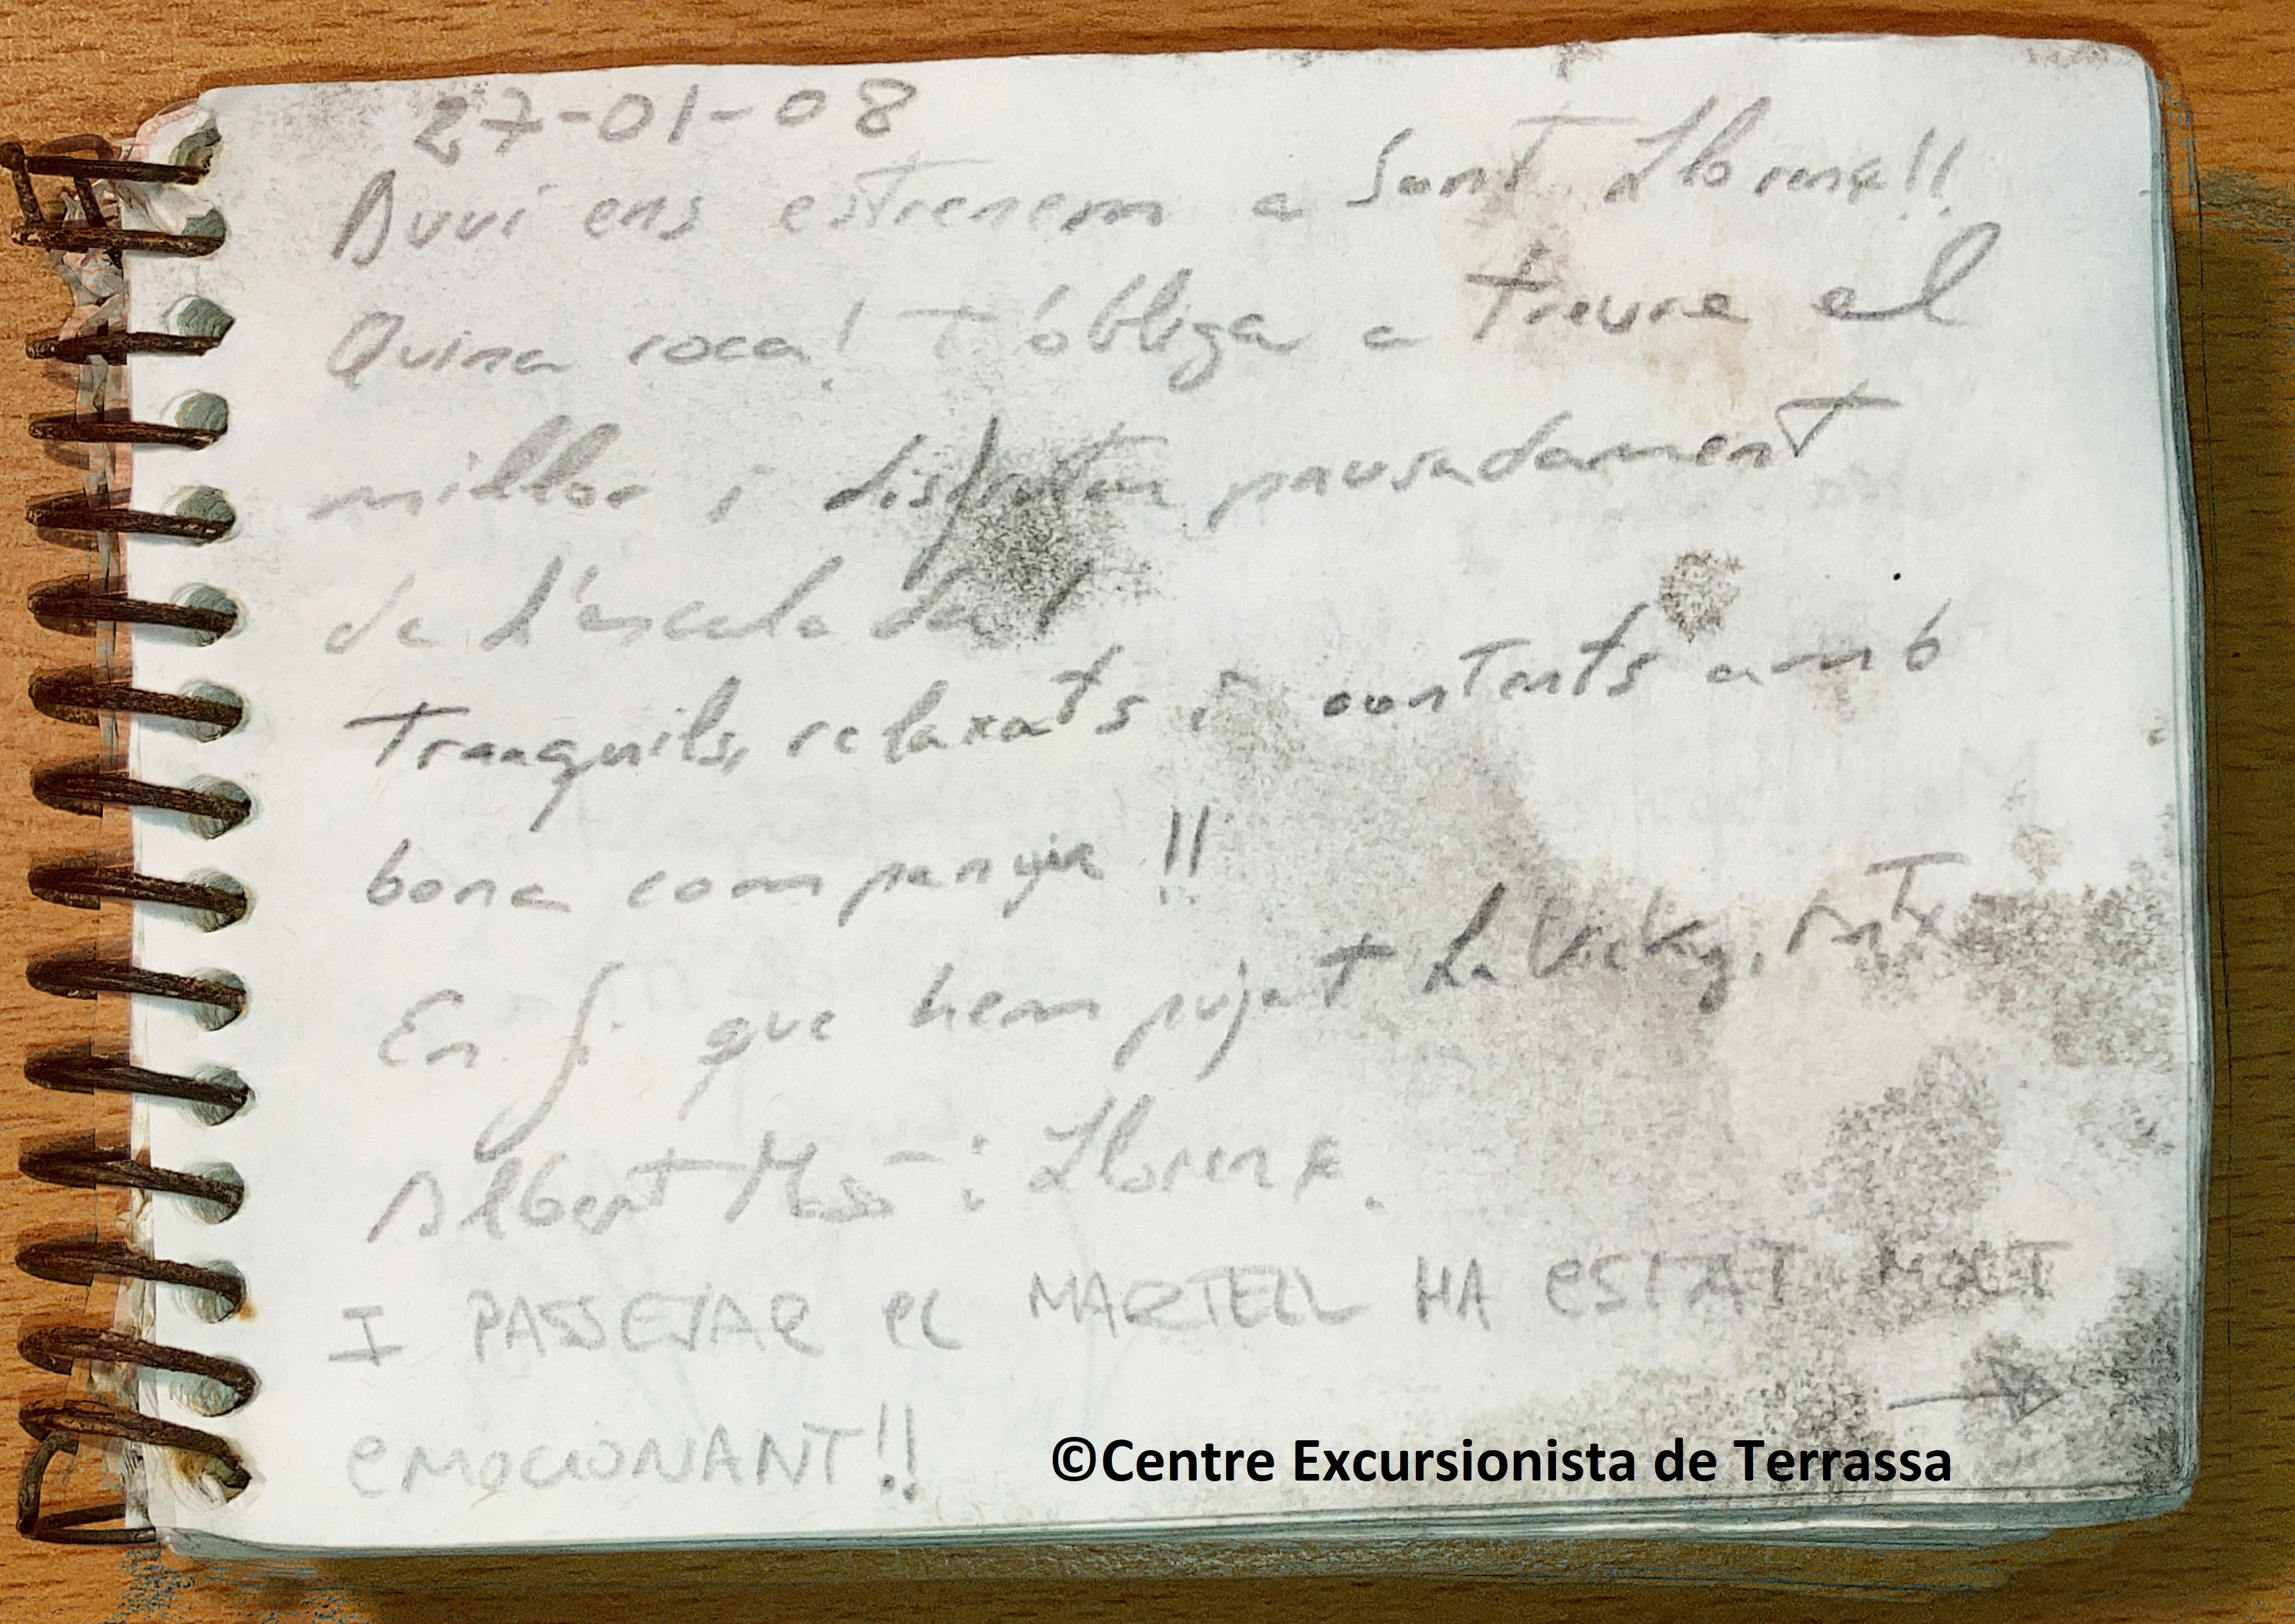 27-01-08
Avui ens estrenem a Sant Llorenç!!
Quina roca! T'obliga a treure el
millor i disfrutar pausadament
de l'escalada!
Tranquils, relaxats i contents amb
bona companyia!!
En fi que hem pujat la Vicky,
Albert i Llorenç.
I PASSEJAR el MARTELL HA eSTAT MOLT
eMOCIONANT!!
©Centre Excursionista de Terrassa